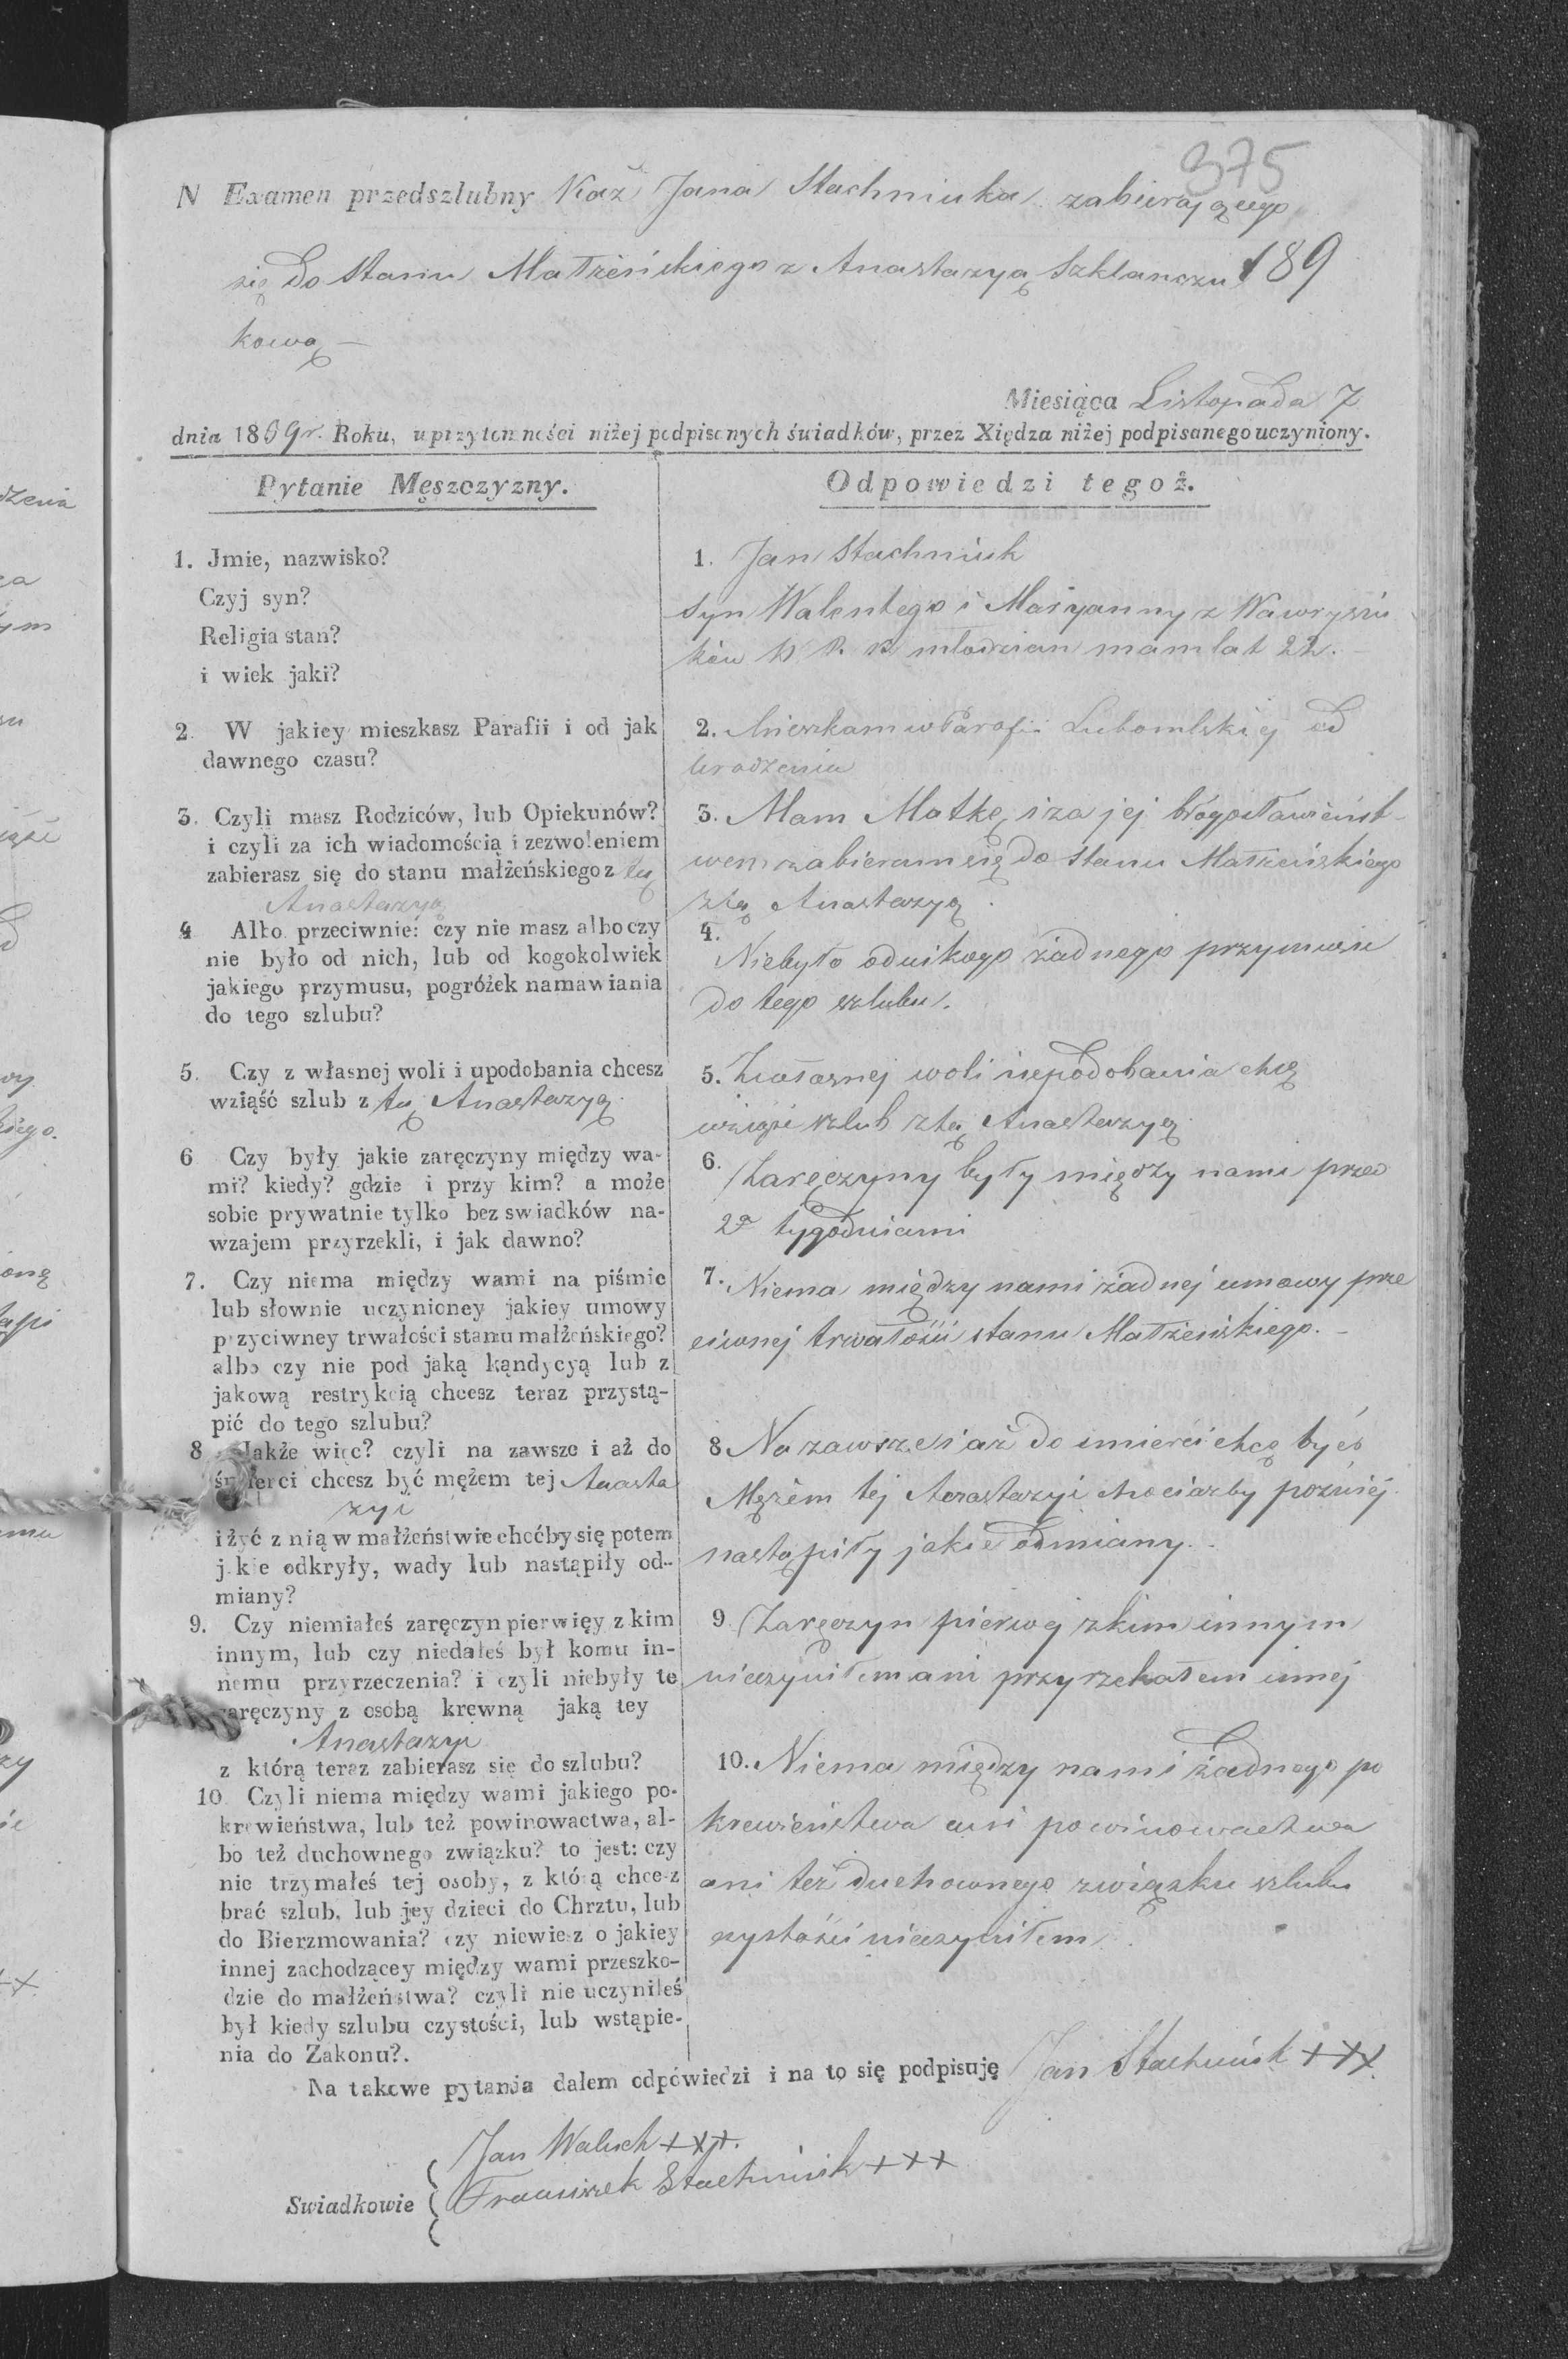 375
N Examen przedszlubny Kaź Jana Stachniuka zabierającego
się do Stanu Małżeńskiego z Anastazyą Szklanczu
189
kową —
Miesiąca Listopada 7
dnia 1869 r. Roku, uprzytomności niżej podpisanych świadków, przez Xiędza niżej podpisanego uczyniony.
Pytanie Męszczyzny.
Odpowiedzi tegoż.
1. Jmie, nazwisko?
Czyj syn?
Religia stan?
i wiek jaki?
1. Jan Stachniuk
Syn Walentego i Maryanny z Nawrysiu
ków W R. K młodzian mam lat 22. —
2. W jakiey mieszkasz Parafii i od jak
dawnego czasu?
2. Mieszkam w Parafii Lubomlskiej od
urodzenia
3. Czyli masz Rodziców, lub Opiekunów?
i czyli za ich wiadomością i zezwoleniem
zabierasz się do stanu małżeńskiego z tą
Anastazyą
3. Mam Matkę i za jej błogosławieńst-
wem zabieram się do Stanu Małżeńskiego
z tą Anastazyą.
4 Albo przeciwnie: czy nie masz albo czy
nie było od nich, lub od kogokolwiek
jakiego przymusu, pogróżek namawiania
do tego szlubu?
4.
Niebyło odnikogo żadnego przymusu
do tego szlubu.
5. Czy z własnej woli i upodobania chcesz
wziąść szlub z tą Anastazyą.
5. Zwłasnej woli iupodobania chcę
wziąść szlub ztą Anastazyą
6 Czy były jakie zaręczyny między wa-
mi? kiedy? gdzie i przy kim? a może
sobie prywatnie tylko bez swiadków na-
wzajem przyrzekli, i jak dawno?
6. Zaręczyny były między nami przed
2a tygodniami
7. Czy niema między wami na piśmie
lub słownie uczynioney jakiey umowy
przyciwney trwałości stanu małżeńskiego?
albo czy nie pod jaką kąndycyą lub z
jakową restrykcią chcesz teraz przystą-
pić do tego szlubu?
7. Niema między nami żadnej umowy prze
ciwnej trwałości stanu Małżeńskiego. —
8 Jakże więc? czyli na zawsze i aż do
śmierci chcesz być mężem tej Anasta
zyi
i żyć z nią w małżeństwie choćby się potem
jakie odkryły, wady lub nastąpiły od-
miany?
8 Na zawsze i aż do śmierci chcę być
Mężem tej Anastazyi chociażby poźniej
nastąpiły jakie odmiany.
9. Czy niemiałeś zaręczyn pierwięy z kim
innym, lub czy niedałeś był komu in-
nemu przyrzeczenia? i czyli niebyły te
zaręczyny z osobą krewną jaką tey
Anastazyi
z którą teraz zabierasz się do szlubu?
9 Zaręczyn pierwej zkim innym
nieczyniłem ani przyrzekałem innej
10 Czyli niema między wami jakiego po-
krewieństwa, lub też powinowactwa, al-
bo też duchownego związku? to jest: czy
nie trzymałeś tej osoby, z którą chcesz
brać szlub, lub jey dzieci do Chrztu, lub
do Bierzmowania? czy niewiesz o jakiey
innej zachodzącey między wami przeszko-
dzie do małżeństwa? czyli nie uczyniłeś
był kiedy szlubu czystości, lub wstąpie-
nia do Zakonu?.
10. Niema między nami żadnego po
krewieństwa ani powinowactwa
ani też duchownego związku szlubu
czystości nieczyniłem.
Na takowe pytania dałem odpówiedzi i na to się podpisuję Jan Stachniuk +++
Jan Waluch +++.
Swiadkowie Franciszek Stachniuk +++